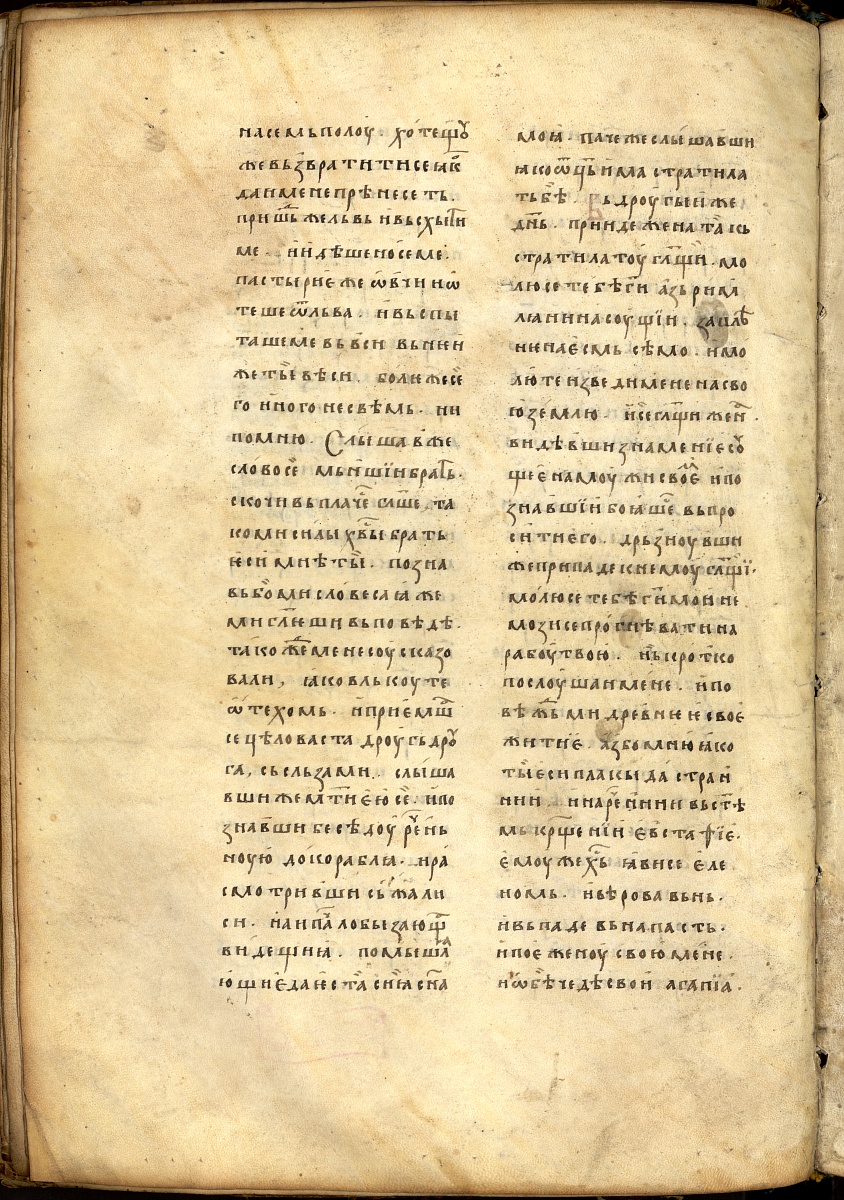 на семь полоу · хотещоу
же възвратити се ꙗк
да и мене прѣнесеть ·
пришь же львь и въсхыти
ме · и идѣше носе ме ·
пастырие же ѡвчи ѿ
теше ѿ льва · и въспы
таше ме вь вси вь нѥи
же ты вѣси · боле же се
го иного не свѣмь · ни
помню · Слышав же
слово се мьнши братⸯ ·
скочи вь плаче гл҃ше, та
ко ми силы хв҃ы брать
ѥси мнѣ ты · позна
вь бо ми словеса ꙗже
ми гл҃ѥши въповѣдѣ ·
тако же мене соу сказо
вали, ꙗко влькоу те
ѿтехомь · и приемша
се цѣловаста дроугь дроу
га, сьсльзами · слыша
вши же мт҃и ею се · и по
знавши бесѣдоу реч҃нь
ноую до корабля · и ра
смотривши сꙗ жали
си · наипа лобызающа
видещи ꙗ · помышля
ющи ѥда ѥста си ꙗ сн҃а
моꙗ · паче же слышавши
ꙗко ѡц҃ь има стратила
ть бѣ · Вь дроугыи же
дн҃ь · приде жена та кь
стратилатоу гл҃щи · мо
лю се тебѣ ги҃ азь римл
ꙗнина соущи · заплѣ
нена ѥсмь сѣмо · и мо
лю те изведи мене на сво
ю землю · и се гл҃щи жен ·
видѣвши знамениѥ соу
щеѥ на моужи своѥ и по
знавши и боꙗше вьпро
сити его · дрьзноувши
же припаде к нѥмоу гл҃щи ·
молю се тебѣ ги҃ мои не
мози се прогнѣвати на
рабоу твою · нь кротко
послоушаи мене · и по
вѣжь ми древнѥѥ своѥ
житиѥ · аз бо мню ꙗко
ты ѥси плакыда страи
нии · и нарѣ ѥнии вь стѣ
мь крщ҃ении ѥвстафиѥ ·
ѥмоу же х҃ь ꙗви се ѥле
номь · и вѣрова вь нь ·
и вьпаде вь напасть ·
и поѥ женоу свою мене ·
и ѡбѣ чедѣ свои агапиꙗ ·